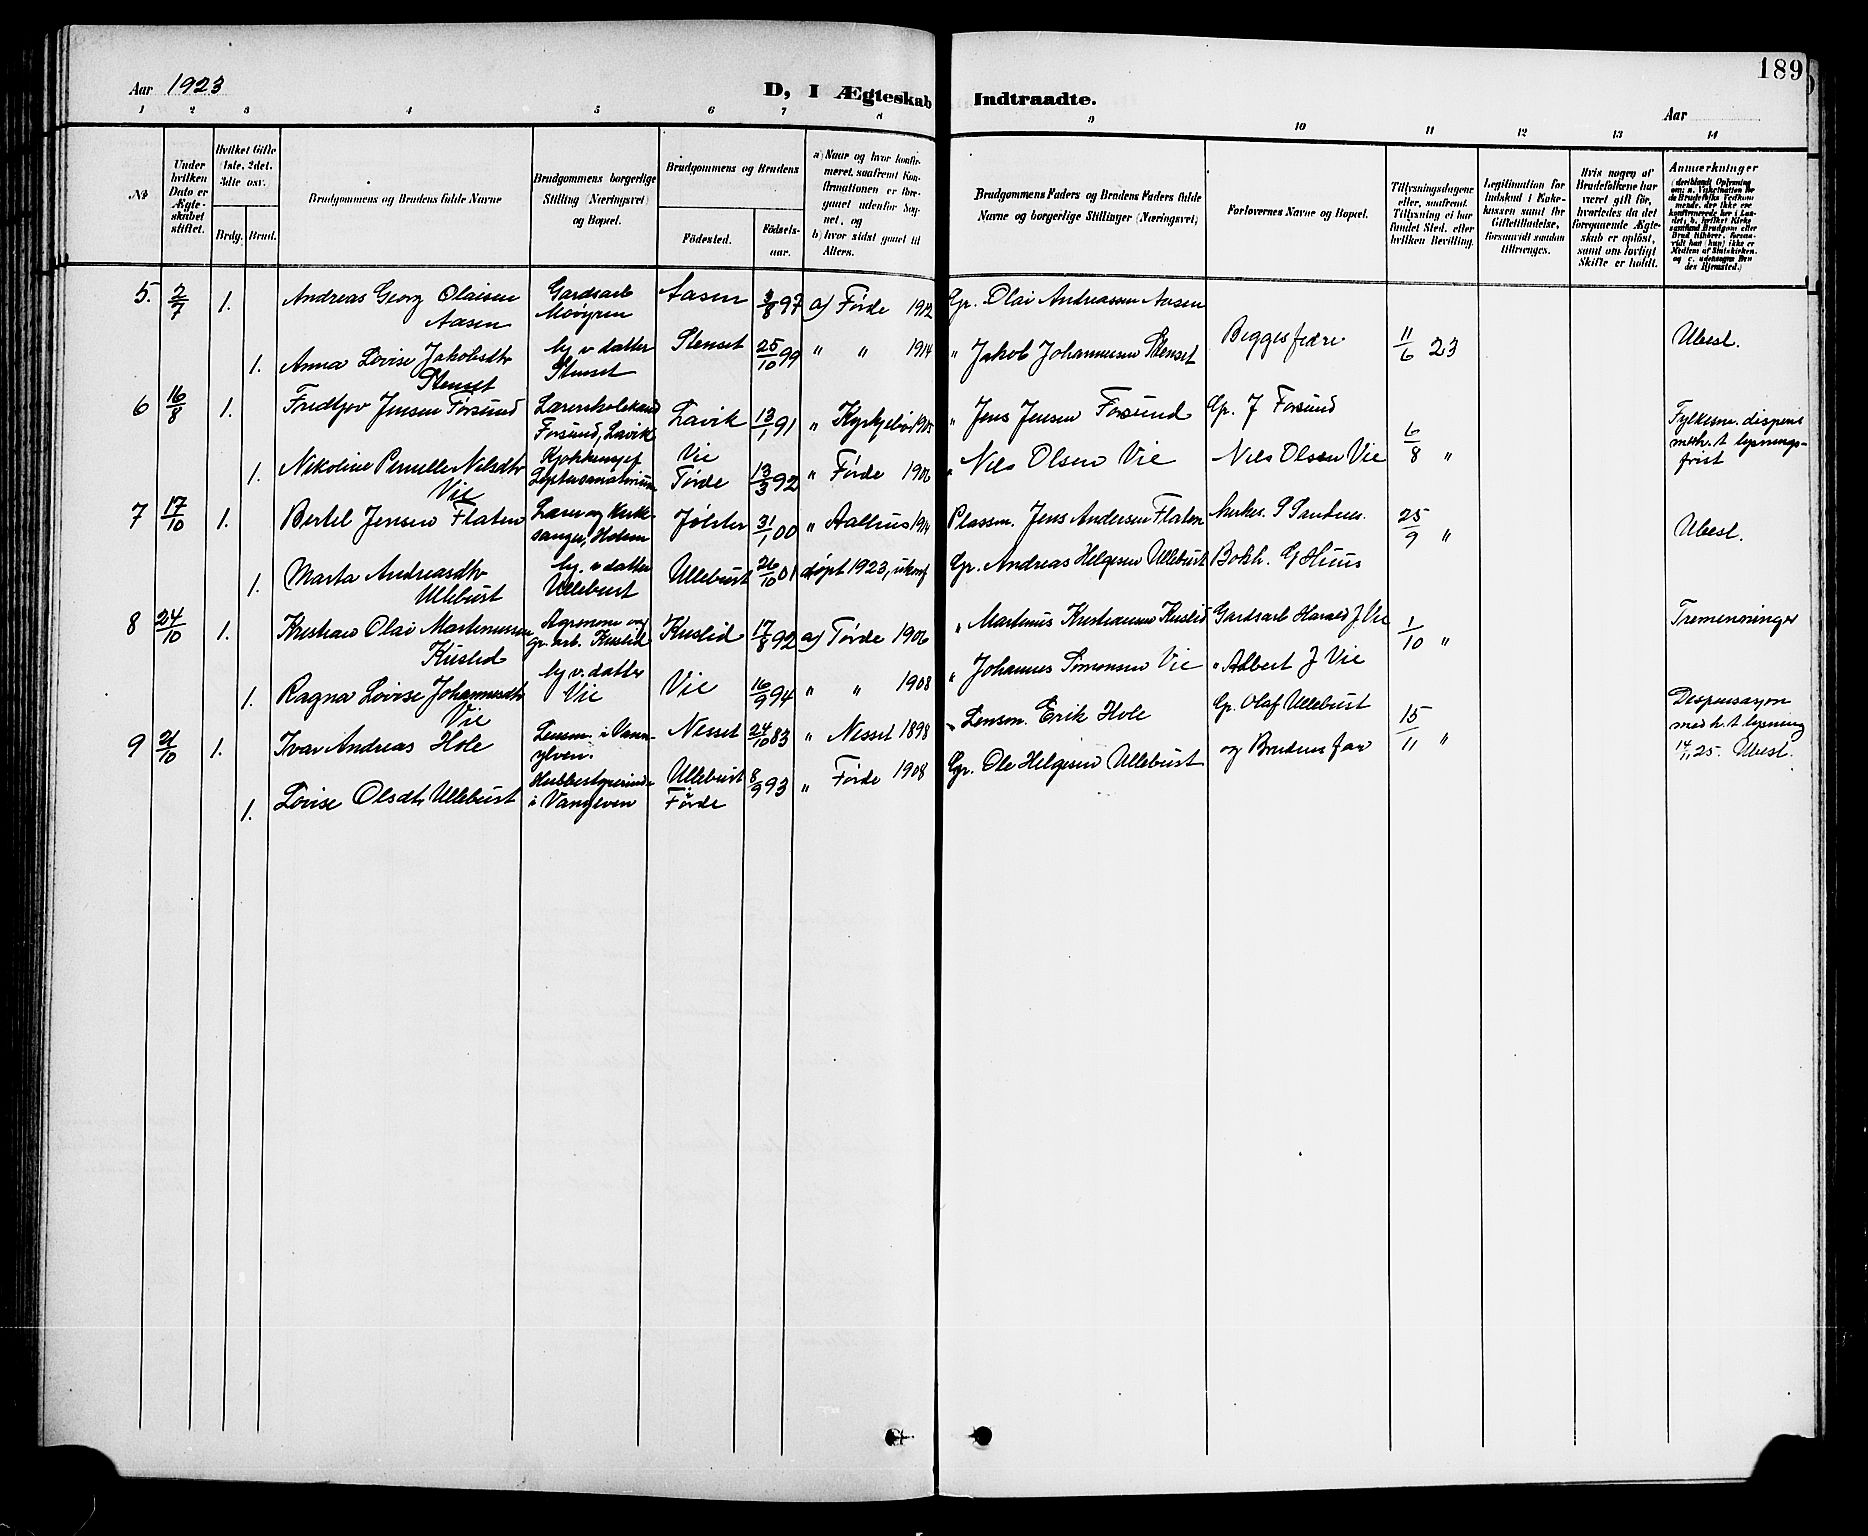 189
Aar 1923
D, I Ægteskab Indtraadte.
Aar
1 2 3 4 5 6 7 8 9 10 11 12 13 14
№
Under hvilken Dato er Ægteskabet stiftet.
Hvilket Gifte (1ste, 2det, 3die osv.
Brdg. Brud.
Brudgommens og Brudens fulde Navne
Brudgommens borgerlige Stilling (Næringsvei) og Bopæl.
Brudgommens og Brudens
Födested.
Födselsaar.
a) Naar og hvor konfirmeret, saafremt Konfirmationen er foregaaet udenfor Sognet, og
b) hvor sidst gaaet til Alters.
Brudgommens Faders og Brudens Faders fulde Navne og borgerlige Stillinger (Næringsvei)
Forlovernes Navne og Bopæl.
Tillysningsdagene eller, saafremt Tillysning ei har fundet Sted, efter hvilken Bevilling.
Legitimation for Indskud i Enkekassen samt for Giftetilladelse, forsaavidt saadan tiltrænges.
Hvis nogen af Brudefolkene har været gift för, hvorledes da det foregaaende Ægteskab er oplöst, samt om lovligt Skifte er holdt.
Anmærkninger
5. 2/7 1. Andreas Georg Olaisen Aasen
Gardsarb Moägren
Aasen 3/8 97 a) Førde 1912
Gr. Olai Andreassen Aasen
1. Anna Lovise Jakobsdtr Stenset
hj v datter Stenset
Stenset 25/10 99 " " 1914
" Jakob Johannesen Stenset
Begges fedre
11/6 23
Ubesl.
6 16/8 1. Fredtjov Jensen Torsund
Lærerskolekand Forsund, Lavik
Lavik 13/1 91 " Kyrkjebø 1905
" Jens Jensen Forsund
Gr. J Forsund
6/8 "
Fylkesm. dispens m.h.t. lysningsfrist
1. Nikoline Pernille Nilsdtr Vie
Vie Førde 13/3 92 " Førde 1906
" Nils Olsen Vie
Nils Olsen Vie
7 17/10 1. Bertel Jensen Flaten
Lærer og kirkesanger, Holsen
Jølster 31/1 00 " Aalhus 1914
Plassm. Jens Andersen Flaten
25/9 "
Ubesl.
1. Marta Andreasdtr Ullebust
hj. v datter Ullebust
Ullebust 26/10 01 døpt 1923, ukonf
Gr. Andreas Helgesen Ullebust
Bokh. G Huus
8 24/10 1. Kristian Olai Martinussen Kuslid
Agronom og gr. arb. Kuslid
Kuslid 17/8 92 a) Førde 1906
" Martinus Kristiansen Kuslid
Gardsarb Harald J. Vie
1/10 "
Tremenninger
1. Ragna Lovise Johannesdtr Vie
hj v. datter Vie
Vie 16/9 94 " " 1908
" Johannes Simonsen Vie
" Adbert J Vie
9 21/10 1. Ivar Andreas Hole
Lensm. i Vannylven
Nesset 24/10 83 " Nesset 1898
" Lensm. Erik Hole
Gr. Olaf Ullebust
15/11 "
Dispensasjon med h. t. lysning 14/1 25. Ubesl.
1. Lovise Olsdtr Ullebust
Husbestyrerinde i Vanylven
Ullebust i Førde 8/9 93 " Førde 1908
Gr. Ole Helgesen Ullebust
og Brudens far